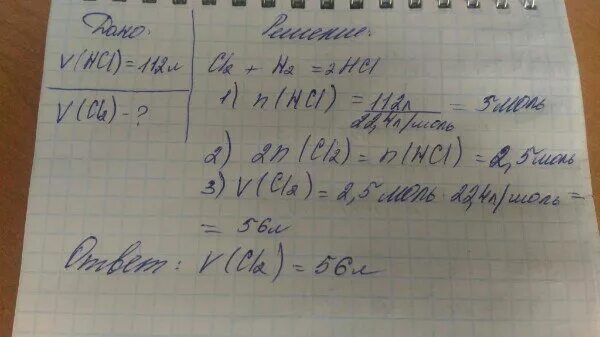 Дано:
V(HCl)=112л
V(Cl2) - ?
Решение:
Cl2 + H2 = 2HCl
1) n(HCl) = 112л / 22,4л/моль = 5моль
2) 2n(Cl2) = n(HCl) = 2,5моль
3) V(Cl2) = 2,5моль · 22,4л/моль =
= 56л
Ответ: V(Cl2) = 56л